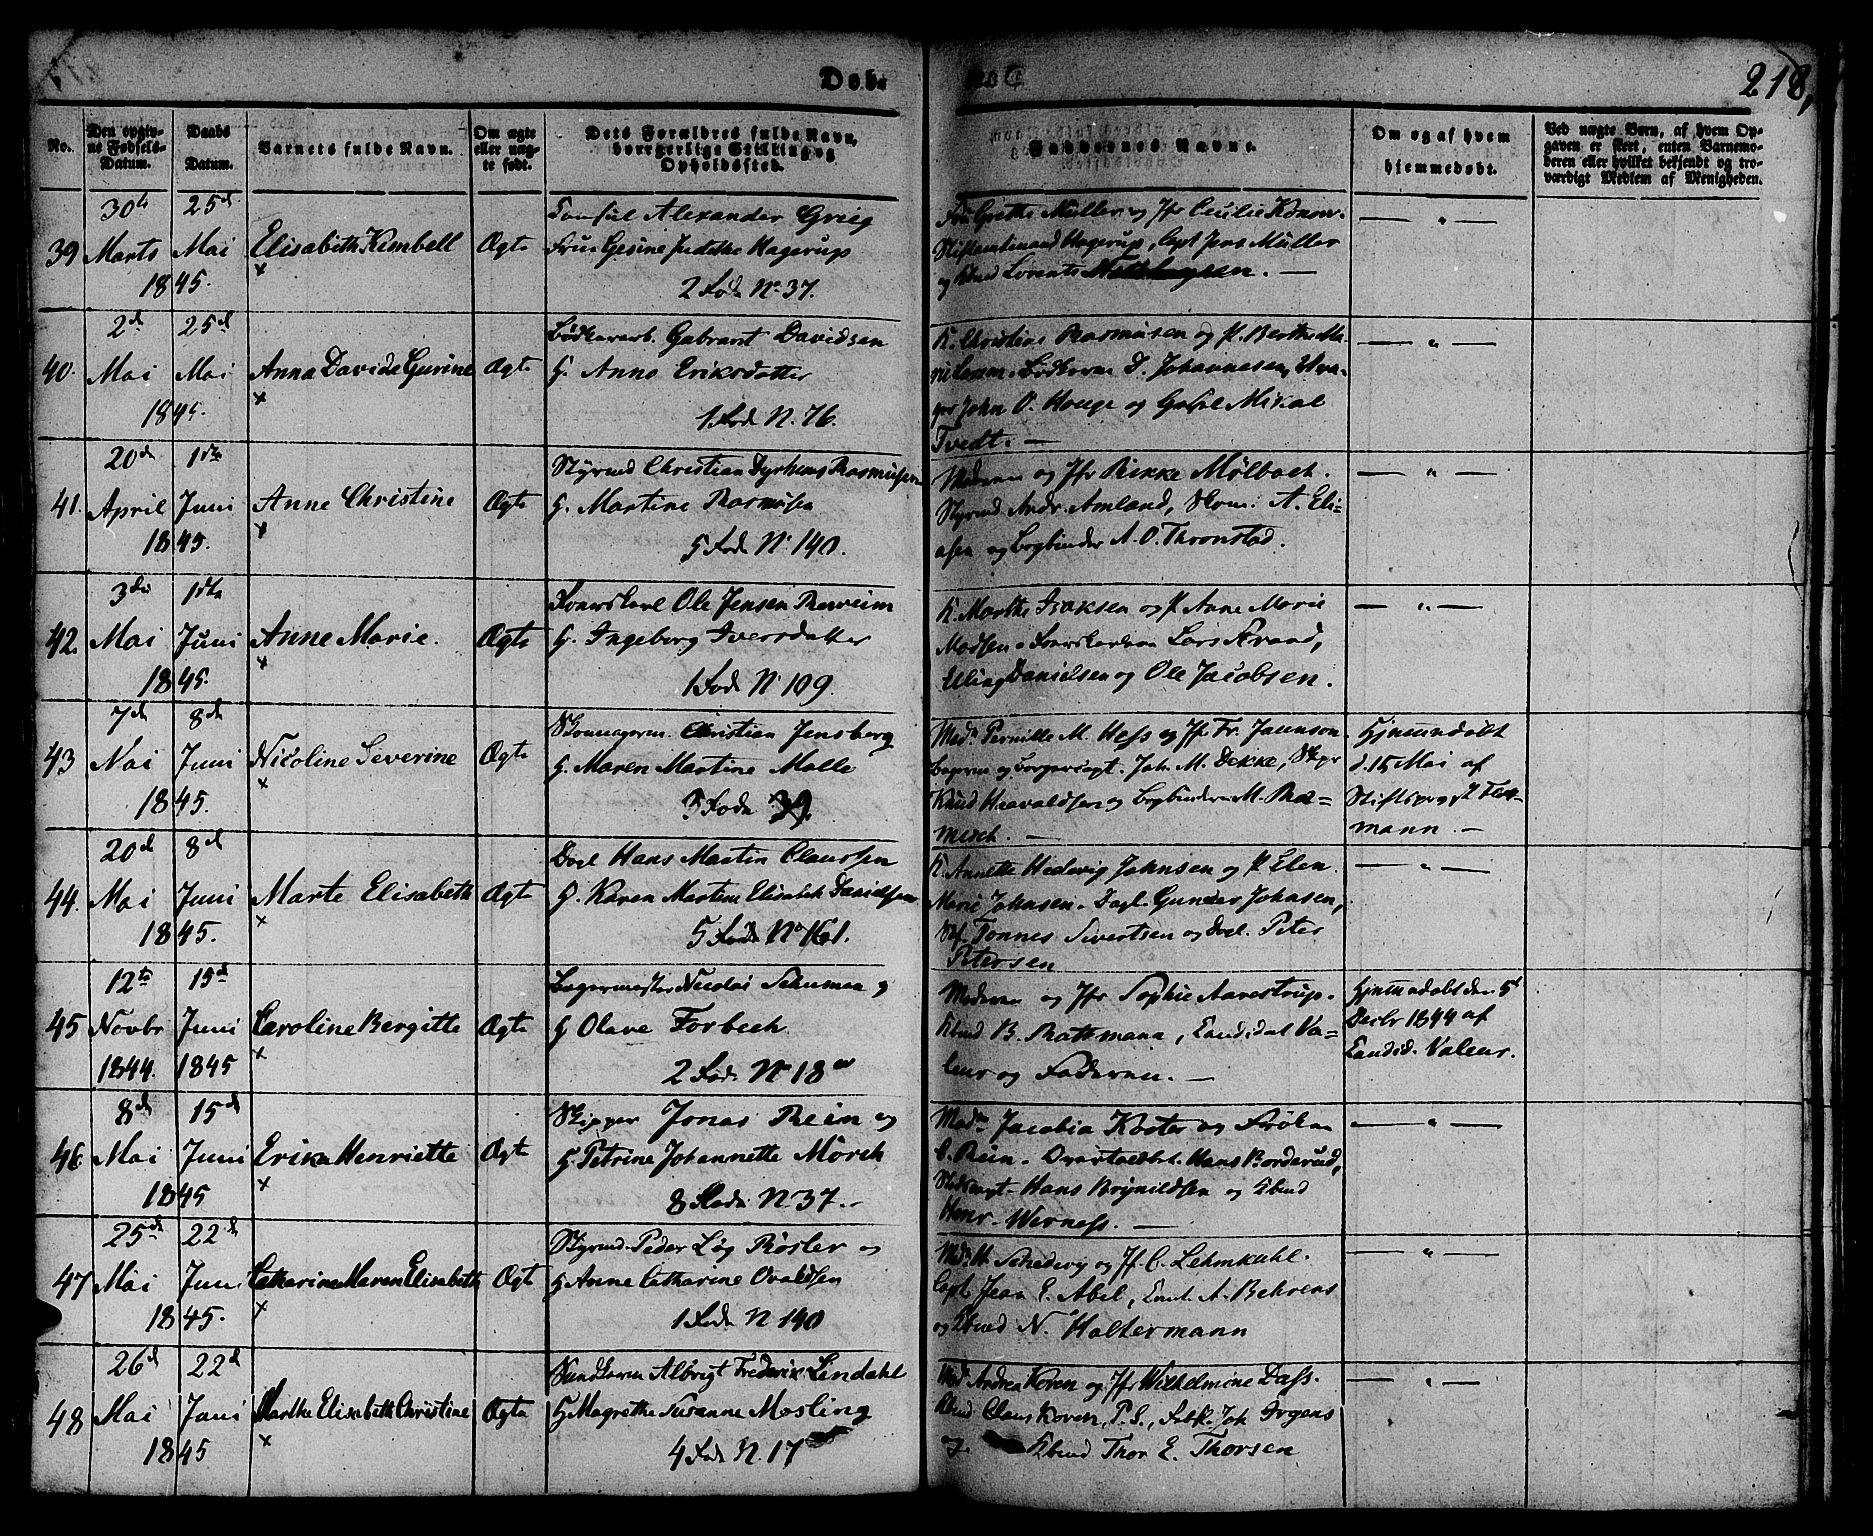 Døb.
218,
No.
Den opgiv-
ne Fødsels-
Datum.
Daabs
Datum.
Barnets fulde Navn.
Om ægte
eller uæg-
te født.
Dets Forældres fulde Navn,
borgerlige Stilling og
Opholdssted.
Faddernes Navne.
Om og af hvem
hjemmedøbt.
Ved uægte Børn, af hvem Op-
gaven er skeet, enten Barnemo-
deren eller hvilket bekjendt og tro-
værdigt Medlem af Menigheden.
39
30te Marts 1845.
25d Mai
Elisabeth Kimbell
Ægte
Consul Alexander Grieg
Frue Gesine Judithe Hagerup
2 Fode No 37.
Fru Grethe Müller og Jfr Cecilie Konow.
Stiftamtmand Hagerup, Capt Jens Müller
og Kbmd Lorents
— " —
40.
2d Mai 1845.
25d Mai
Anna Davide Gurine
Ægte
Bødkerarb. Gabrant Davidsen
H. Anna Eriksdatter
1 Fode N. 76.
K. Christine Rasmusen og P. Berthe Ma-
rie Larsen. Bødkerne D. Johannesen,
John O. Houge og Mikal
Tvedt. —
— " —
41.
20de April 1845.
1ste Juni
Anne Christine
Ægte
Styrmd Christian Rasmussen
H. Martine Rasmusen
5 Fode No 140.
Moderen og Jfr Rikke Mølbach.
Styrmd Andr. Amland, Skom: A. Eli-
asen og Bogbinder A. O. Thronstad.
— " —
42.
3die Mai 1845.
1ste Juni
Anne Marie.
Ægte
Ole Jensen Røsveim
H. Ingeborg Iversdatter
1 Fode No 109.
K. Marthe Isaksen og P Anne Marie
Madsen. Lars Strand,
Elling Danielsen og Ole Jacobsen.
— " —
43
7de Mai 1845.
8de Juni
Nicoline Severine
Ægte
Skomagerm. Christian Jensberg
H. Maren Martine Malle
3 Fode 39.
Mad. Pernille M. Hess og Jf. Fr. Jaunson
Bagerm og Borgervagt. Joh. M. Dekke,
Knud Haavaldsen og Bogbinder M. Ra-
misch. —
Hjemmedøbt
d. 15 Mai af
Stiftsprovst
mann. —
44.
20d Mai 1845.
8d Juni
Marte Elisabeth
Ægte
Hans Martin Claussen
H. Karen Martine Elisabeth Davidsen
5 Fode No 161.
K. Annette Hedevig Johnsen og P. Elen
Marie Johnsen. Dagl. Gunder Johnsen,
Tønnes Sivertsen og Peter
Petersen
— " —
45
12te Novbr 1844.
15d Juni 1845
Caroline Bergitte
Ægte
Bagermester Nicolai Schuman og
H Olave Forbech
2 Fode No 18
Moderen og Jfr Sophie Aarestrup.
Kbmd B. Rottmann, Candidat Va-
leur og Faderen. —
Hjemmedøbt den 5t
Decbr 1844 af
Candid. Valeur.
46.
8d Mai 1845
15d Juni
Erika Henriette
Ægte
Skipper Jonas Rein og
H. Petrine Johannette Mørch
8 Rode N 37. -
Mad. Jacobia Koster og Frøken
C. Rein. Hans Borderud,
Hans Brynildsen og Kbmd
Henr. Werness. —
— " —
47
25d Mai 1845.
22d Juni
Catharine Maren Elisabeth
Ægte
Styrmd. Peder Løg Røsler og
H Anne Catharine Ovaldsen
1 Fode N 140
Mad. H. Schedevy og Jf. C. Lehmkuhl.
Capt Jean E. Abel, A. Behrens
og Kbmd N. Haltermann
— " —
48
26d Mai 1845
22d Juni
Marthe Elisabeth Christine
Ægte
Albrigt Frederik Lindahl
H. Magrethe Susanne Mosling
4 Fode N. 17
Mad Andrea Koren og Jfr Wilhelmine Dass.
Kbmd Claus Koren, P. S., Joh. Irgens
og Kbmd Thor E. Thorsen
— " —